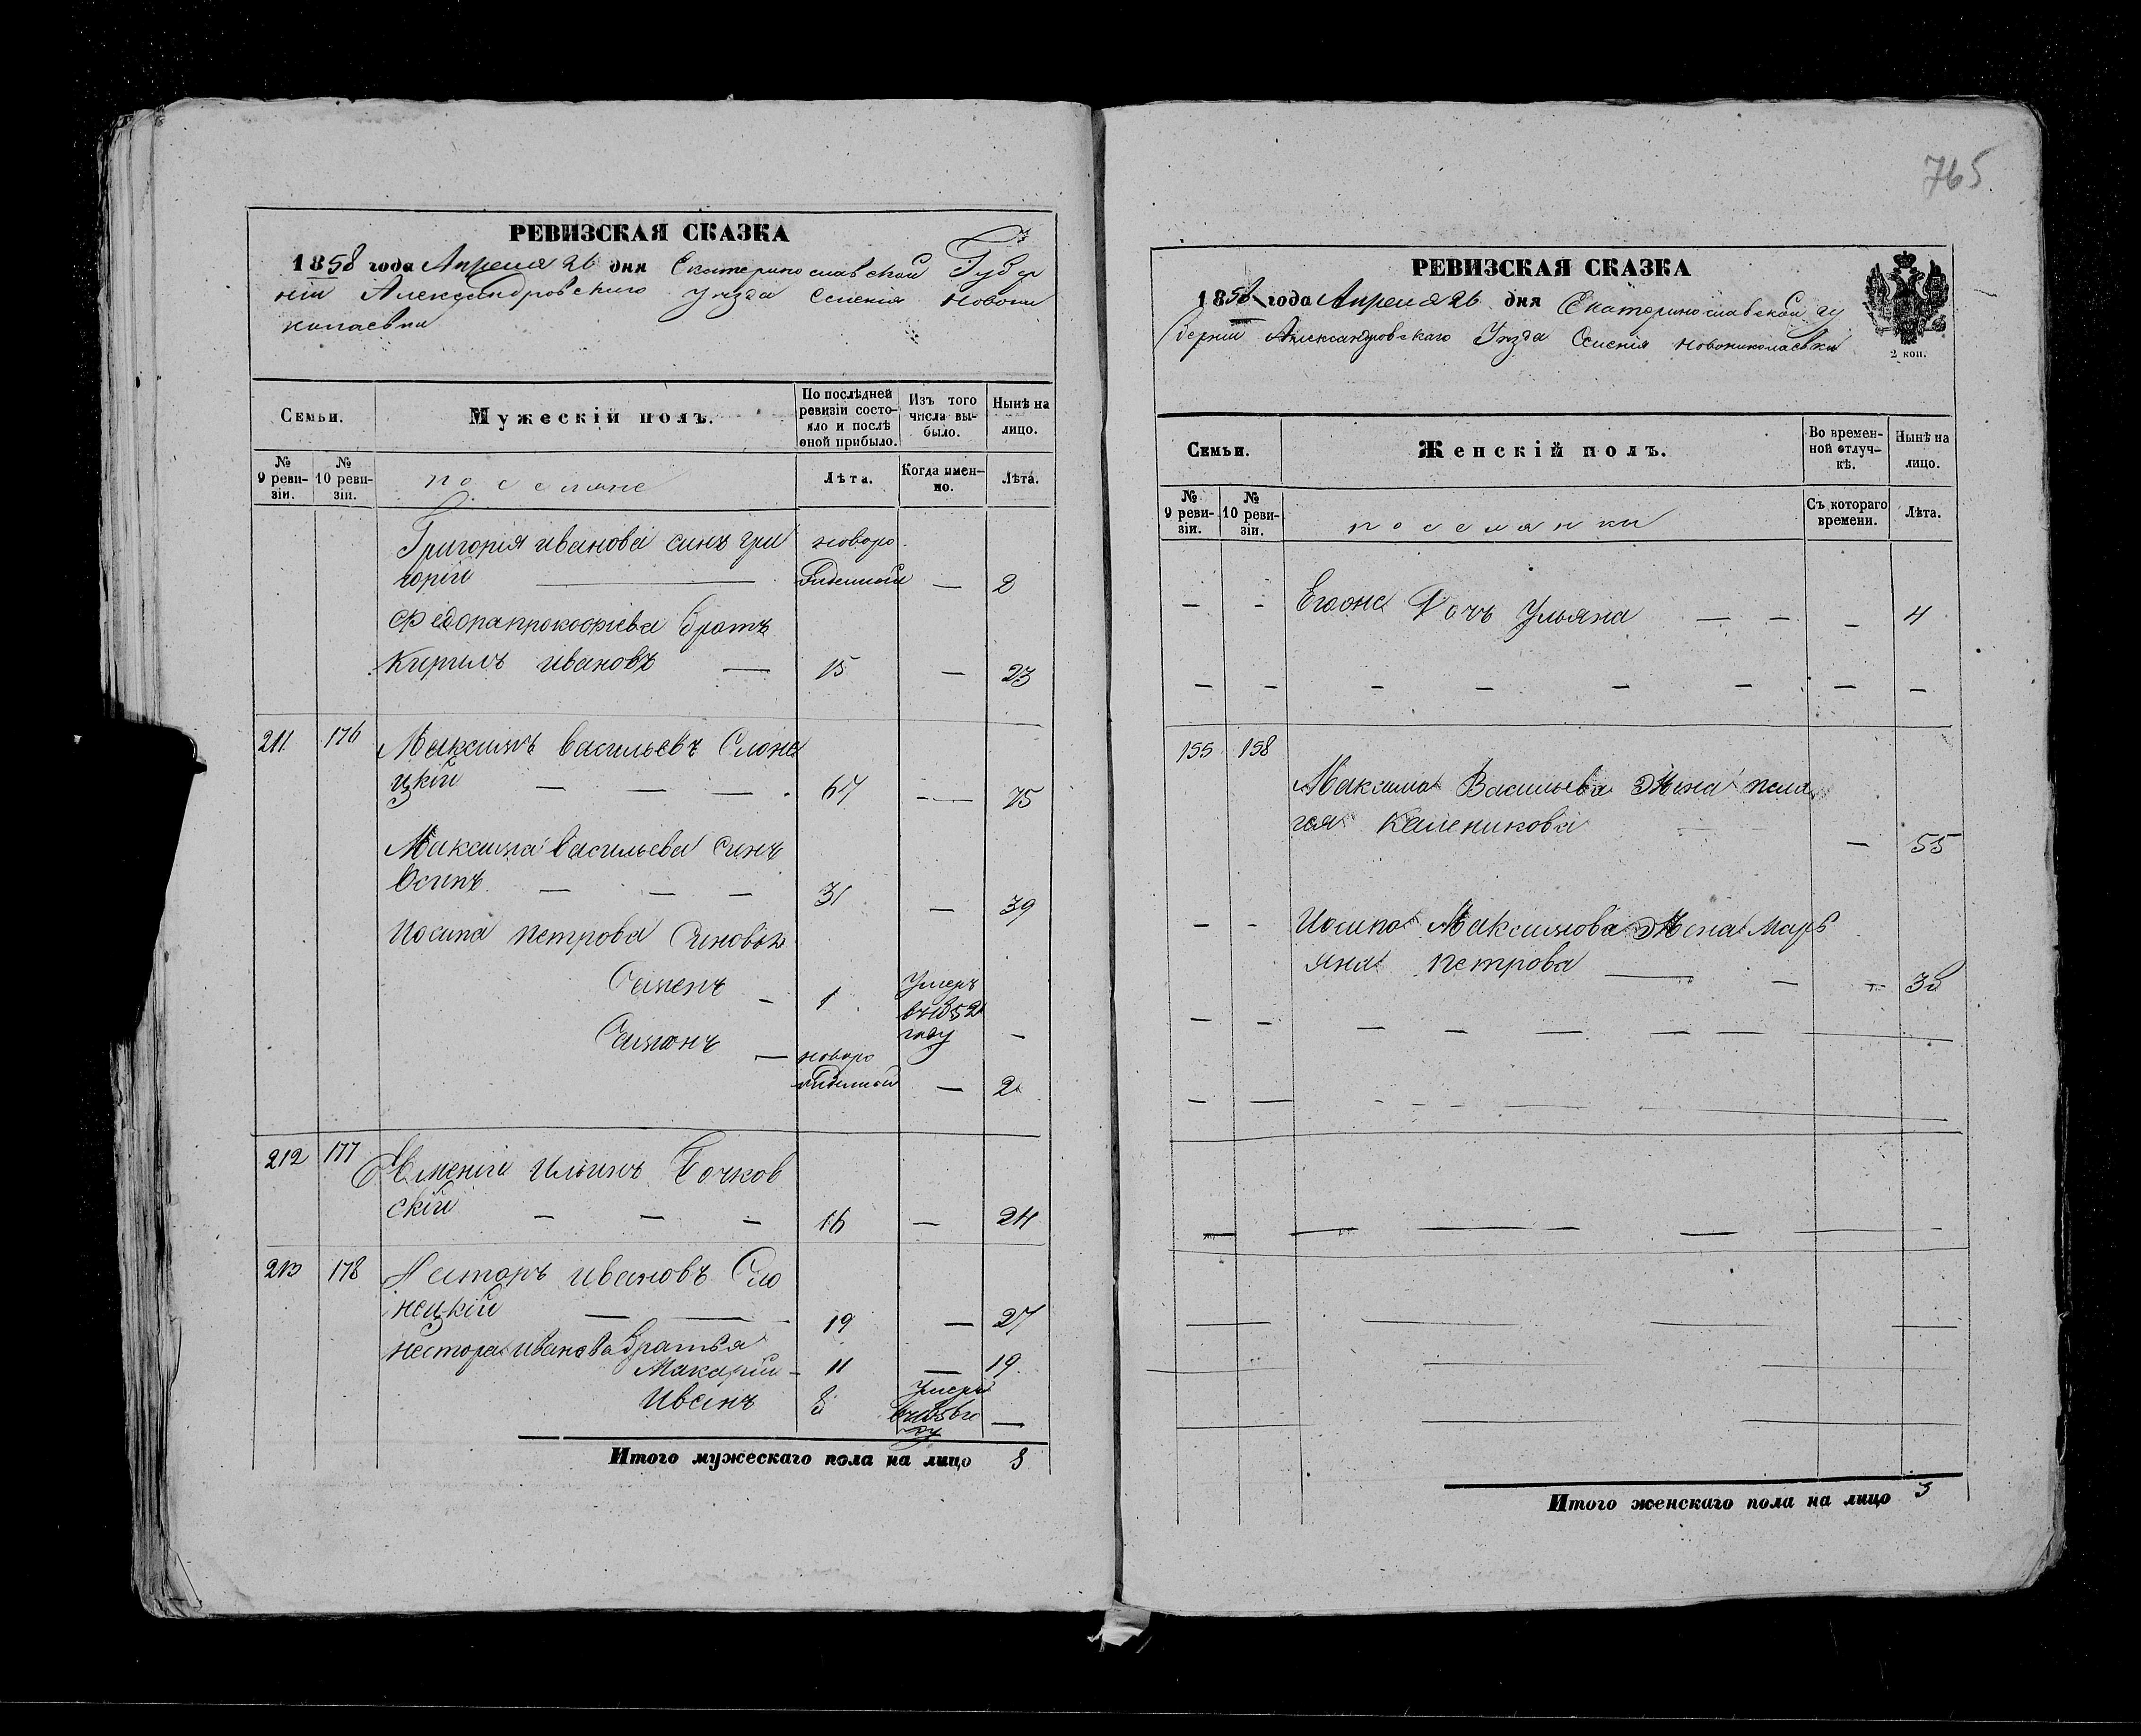 765
РЕВИЗСКАЯ СКАЗКА
1858 года Апреля 26 дня Екатеринославской Губер
нiи Александровского Уезда Селенiя Новони
колаевки
Семьи.
Мужескiй полъ.
По послѣдней ревизiи состо-
яло и послѣ оной прибыло.
Изъ того числа вы-
было.
Нынѣ на лицо.
№ 9 реви-
зiи.
№ 10 реви-
зiи.
поселяне
Лѣта.
Когда имен-
но.
Лѣта.
Григорiя иванова синъ гри новоро
горiй — жденной — 2
Федора прокофiева братъ
Кирилъ ивановъ — 15 — 23
211 176 Максимъ васильевъ Слоне
цкiй — — — 67 — 75
Максима васильева синъ
Осипъ — — — 31 — 39
Иосипа петрова синовья
Семенъ — 1 Умеръ
в 1852
году —
Симонъ — новоро
жденной — 2
212 177 Евменiй Ильинъ Бочков
скiй — — — 16 — 24
213 178 Несторъ ивановъ Сло
нецкiй — — 19 — 27
Нестора иванова братья
Макарiй — 11 — 19
Иванъ 8 Умеръ
—
Итого мужескаго пола на лицо 8
РЕВИЗСКАЯ СКАЗКА
1858 года Апреля 26 дня Екатеринославской гу
бернiи Александровскаго Уезда Селенiя новониколаевки
2 коп.
Семьи.
Женскiй полъ.
Во времен-
ной отлуч-
кѣ.
Нынѣ на лицо.
№ 9 реви-
зiи.
№ 10 реви-
зiи.
поселянки
Съ котораго времени.
Лѣта.
— — Дочъ Ульяна — — — 4
155 158
Максима Васильева Жена пела
гея Каленикова — 55
— — Иосипа Максимова Жена Марь
яна петрова — — —
Итого женскаго пола на лицо 3